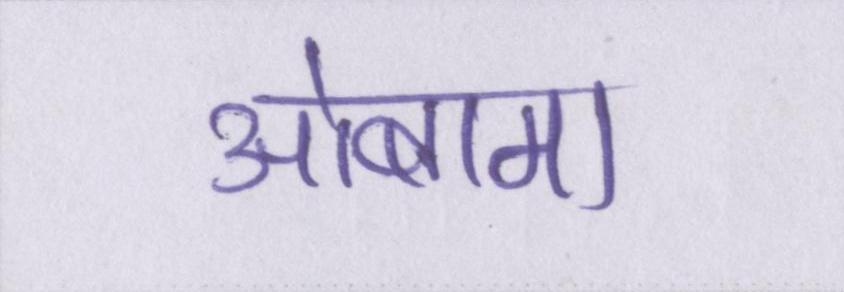 ओबामा